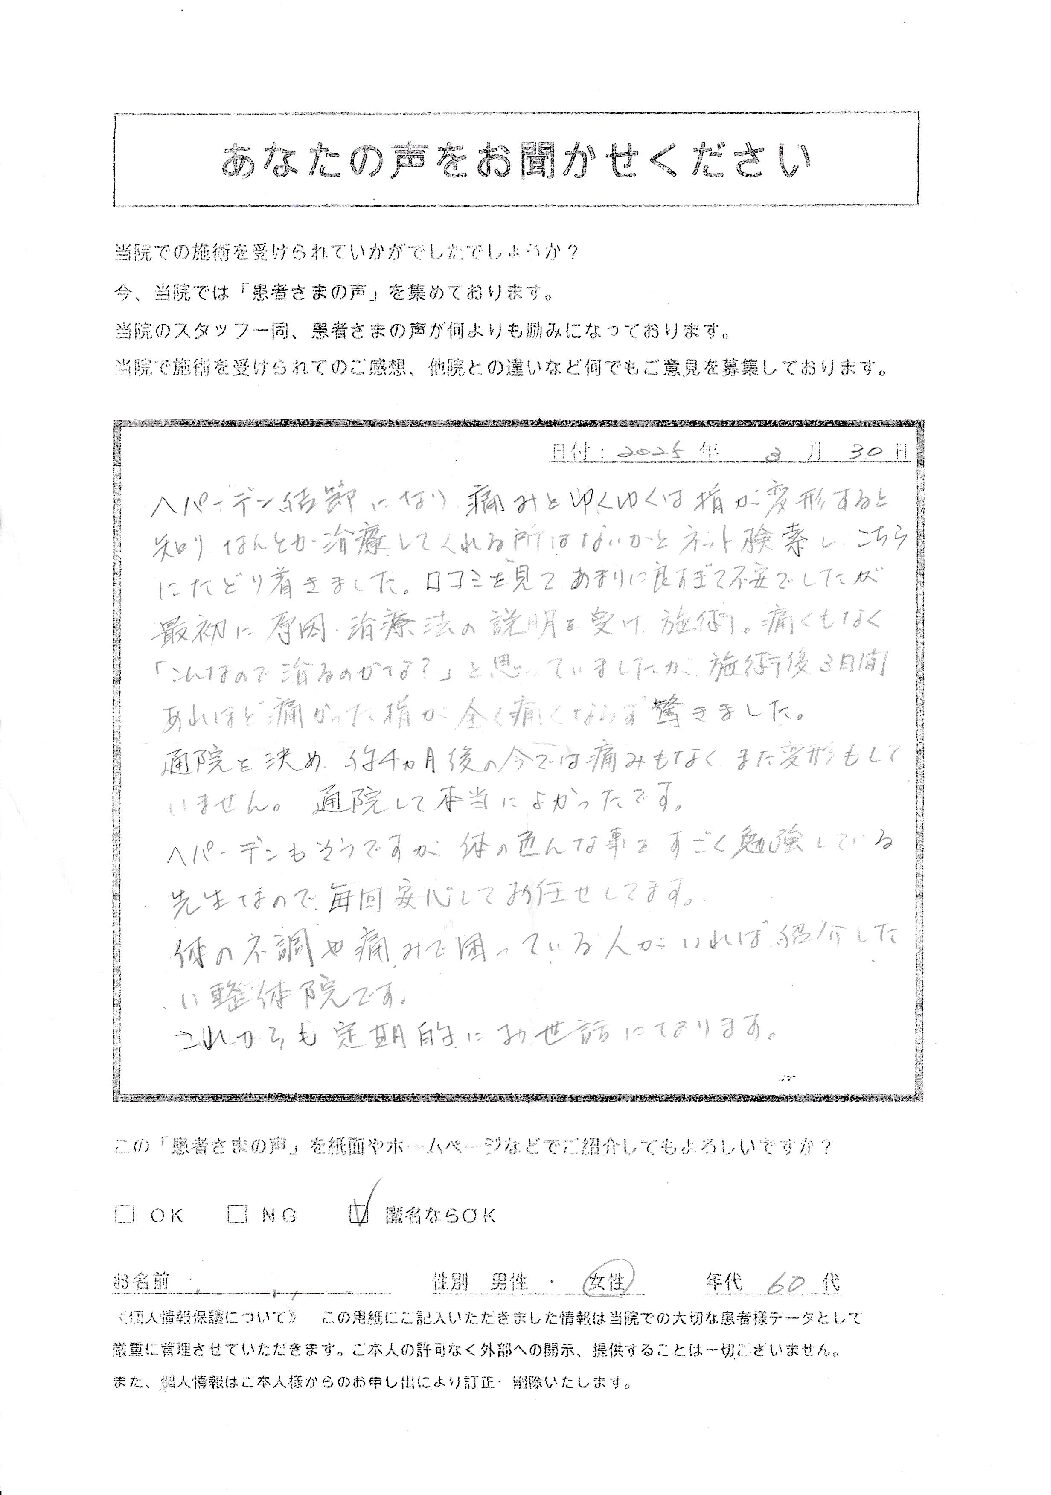 あなたの声をお聞かせください
当院での施術を受けられていかがでしたでしょうか？
今、当院では「患者さまの声」を集めております。
当院のスタッフ一同、患者さまの声が何よりも励みになっております。
当院で施術を受けられてのご感想、他院との違いなど何でもご意見を募集しております。
日付：2025年 3月 30日
ヘバーデン結節になり 痛みとゆくゆくは指が変形すると
知り なんとか治療してくれる所はないかとネット検索し、こちら
にたどり着きました。口コミを見て あまりに良すぎて不安でしたが
最初に原因・治療法の説明を受け 施術。痛くもなく
「こんなので治るのかな？」と思っていましたが、施術後3日間
あれほど痛かった指が全く痛くならず 驚きました。
通院を決め 約4ヵ月後の今では痛みもなく また変形もして
いません。 通院して本当によかったです。
ヘバーデンもそうですが 体の色んな事をすごく勉強している
先生なので 毎回安心してお任せしてます。
体の不調や痛みで困っている人がいれば 紹介した
い整体院です。
これからも定期的にお世話になります。
この「患者さまの声」を紙面やホームページなどでご紹介してもよろしいですか？
□ OK □ NG ☑ 匿名ならOK
お名前 性別 男性 ・ 女性 年代 60 代
《個人情報保護について》 この用紙にご記入いただきました情報は当院での大切な患者様データとして
厳重に管理させていただきます。ご本人の許可なく外部への開示、提供することは一切ございません。
また、個人情報はご本人様からのお申し出により訂正・削除いたします。